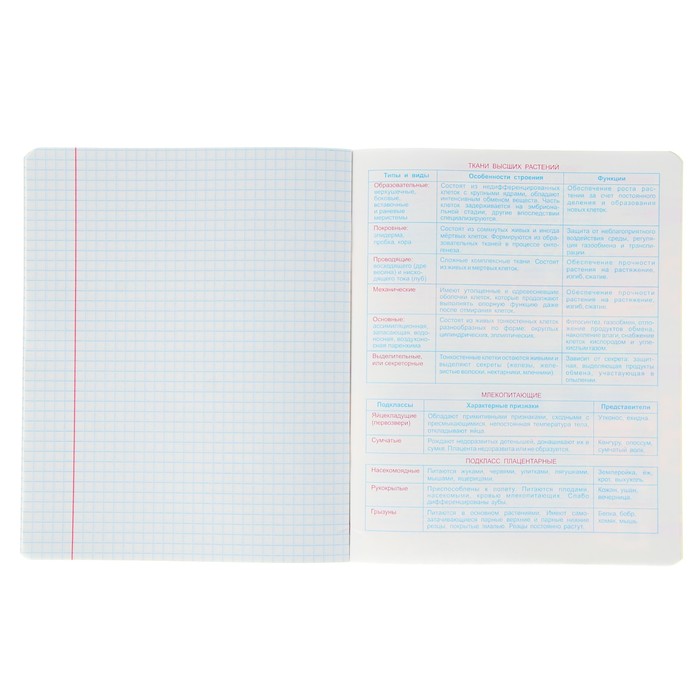 ТКАНИ ВЫСШИХ РАСТЕНИЙ
Типы и виды Особенности строения Функции
Образовательные:
верхушечные,
боковые,
вставочные
и раневые
меристемы
Состоят из недифференцированных
клеток с крупными ядрами, обладают
интенсивным обменом веществ. Часть
клеток задерживается на эмбрио-
нальной стадии, другие впоследствии
специализируются.
Обеспечение роста рас-
тения за счет постоянного
деления и образования
новых клеток.
Покровные:
эпидерма,
пробка, кора
Состоят из сомкнутых живых и иногда
мертвых клеток. Формируются из обра-
зовательных тканей в процессе
Защита от неблагоприятного
воздействия среды, регуля-
ция газообмена и транспи-
рации.
Проводящие:
восходящего (дре-
весина) и нисхо-
дящего тока (луб)
Сложные комплексные ткани. Состоят
из живых и мертвых клеток.
Обеспечение прочности
растения на растяжение,
изгиб, сжатие.
Механические
Имеют утолщенные и одревесневшие
оболочки клеток, которые продолжают
выполнять опорную функцию даже
после отмирания клеток.
Обеспечение прочности
растения на растяжение,
изгиб, сжатие.
Основные:
ассимиляционная,
запасающая, водо-
носная, воздухонос-
ная паренхима
Состоят из живых тонкостенных клеток
разнообразных по форме: округлых
цилиндрических,
Фотосинтез, газообмен, отло-
жение продуктов обмена,
накопление влаги, снабжение
клеток, кислородом и угле-
кислым газом.
Выделительные,
или секреторные
Тонкостенные клетки остаются живыми и
выделяют секреты (железы, желе-
зистые волоски, нектарники,
Зависит от секрета: защит-
ная, выделяющая продукты
обмена, участвующая в
опылении
МЛЕКОПИТАЮЩИЕ
Подклассы Характерные признаки Представители
Яйцекладущие
(первозвери)
Обладают примитивными признаками, сходными с
пресмыкающимися, непостоянная температура тела,
откладывают яйца.
Утконос, ехидна
Сумчатые
Рождают недоразвитых детенышей, донашивают их в
сумке. Плацента недоразвита или не образуется.
Кенгуру, опоссум,
сумчатый волк.
ПОДКЛАСС ПЛАЦЕНТАРНЫЕ
Насекомоядные
Питаются жуками, червями, улитками, лягушками,
мышами, ящерицами.
Землеройка, еж,
крот, выхухоль.
Рукокрылые
Приспособлены к полету. Питаются плодами,
насекомыми, кровью млекопитающих. Слабо
дифференцированы зубы.
Кожан, ушан,
вечерница.
Грызуны
Питаются в основном растениями. Имеют само-
затачивающиеся парные верхние и парные нижние
резцы, покрытые эмалью. Резцы постоянно растут.
Белка, бобр,
хомяк, мышь.